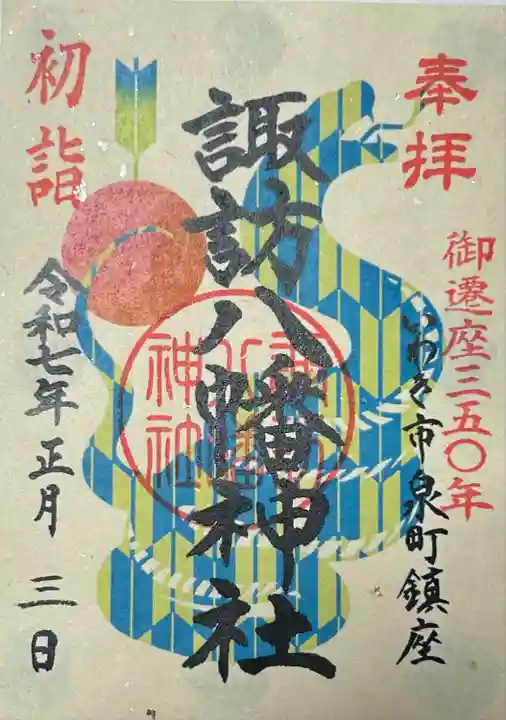 奉拝
御遷座三五〇年
いわき市泉町鎮座
諏訪八幡神社
初詣
令和七年正月三日